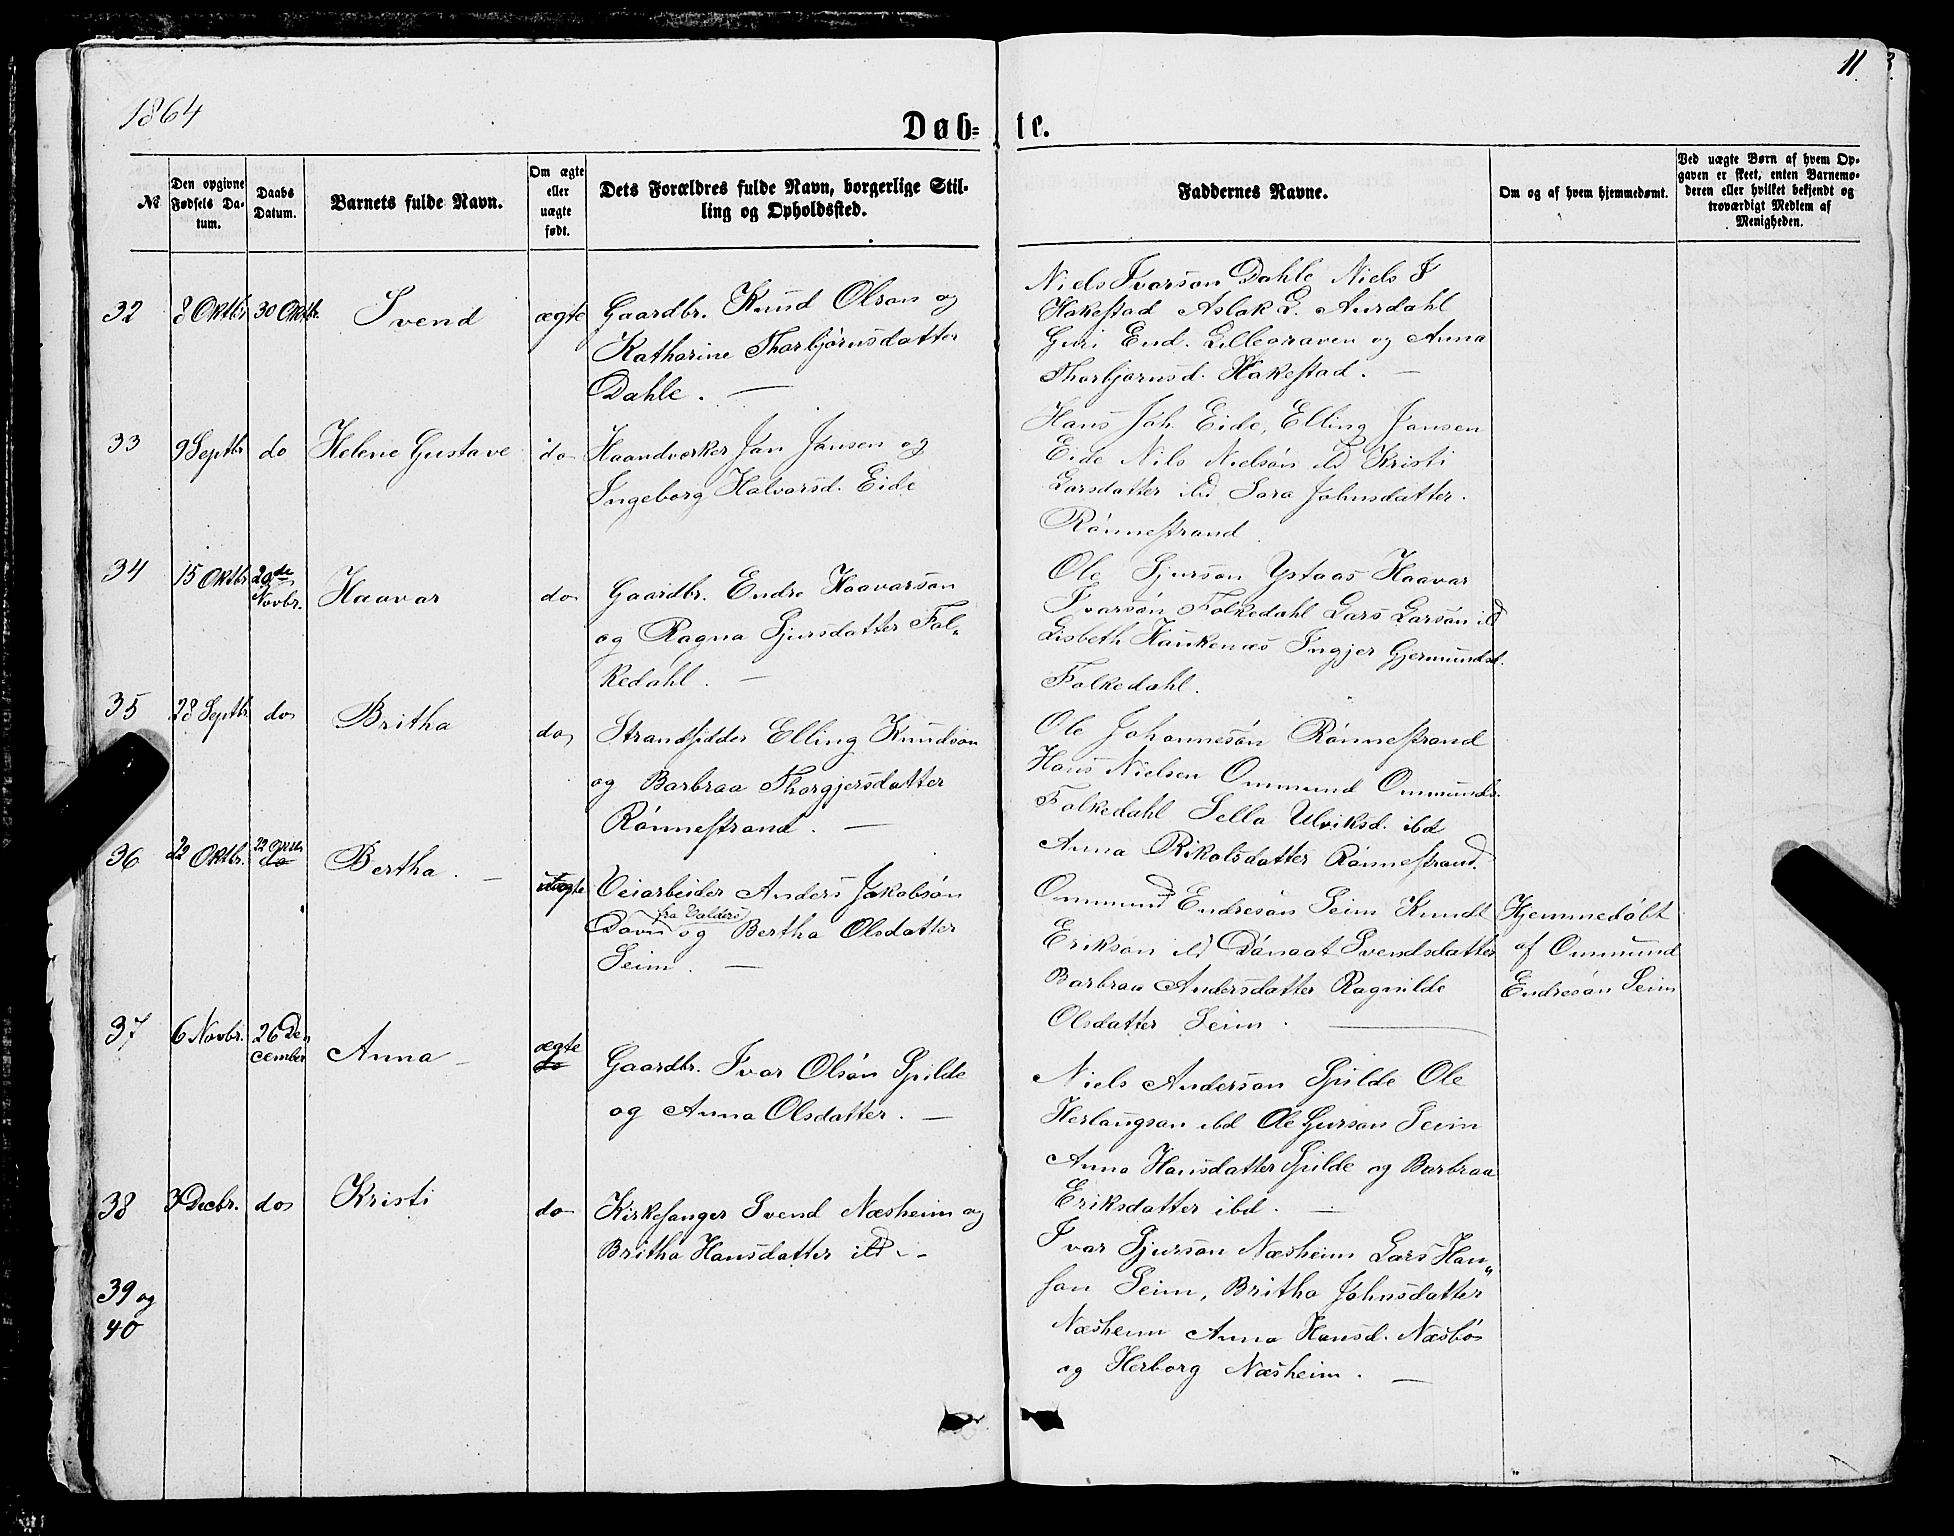 1864
11
Døb= te.
№
Den opgivne Fødsels Da-tum.
Daabs Datum.
Barnets fulde Navn.
Om ægte eller uægte født.
Dets Forældres fulde Navn, borgerlige Stil-
ling og Opholdssted.
Faddernes Navne.
Om og af hvem hjemmedømt.
Ved uægte Børn af hvem Op-
gaven er skeet, enten Barnemo-
deren eller hvilket bekjendt og
troværdigt Medlem af
Menigheden.
32 8 Oktbr 30 Oktbr. Svend ægte
Gaardbr. Knud Olson og
Katharine Thorbjörnsdatter
Dahle. —
Niels Ivarson Dahle Niels I
Hakestad Aslak L. Aurdahl
Guri End. Lillegraven og Anna
Thorbjørnsd. Hakestad. —
33 9 Septbr do Helene Gustave do
Haandverker Jan Jansen og
Ingeborg Halvorsd. Eide
Hans Joh. Eide, Elling Jansen
Eide Nils Nielsön ibd Kristi
Larsdatter ibd Sara Johnsdatter.
Rönnestrand
34 15 Oktbr 20de Novbr. Haavar do
Gaardbr. Endre Haavarson
og Ragna Sjursdatter Fol„
kedahl. —
Ole Sjurson Ystaas Haavar
Ivarsön Folkedahl Lars Larsön ibd
Lisbeth Haukenæs Ingjer Gjermundsd.
Folkedahl.
35 28 Septbr do Britha do
Strandsidder Elling Knudson
og Barbraa Thorgjersdatter
Rönnestrand. —
Ole Johannesön Rönnestrand
Hans Nielsen Ommund Ommunds.
Folkedahl Sella Ulviksd. ibd
Anna Rikolsdatter Rönnestrand.
36 22 Oktbr. do Bertha. — uægte
Veiarbeider Anders Jakobsön
fra Valders
og Bertha Olsdatter
Seim. —
Ommund Endresön Seim Knudt
Eriksön ibd Dönaat Svendsdatter
Barbraa Andersdatter Ragnilde
Olsdatter Seim. —
Hjemmedöbt
af Ommund
Endresön Seim
37 6 Novbr. 26 De„ cember Anna — ægte do
Gaardbr. Ivar Olsön Spilde
og Anna Olsdatter. —
Niels Anderson Spilde Ole
Herlaugson ibd Ole Sjurson Seim
Anna Hansdatter Spilde og Barbraa
Eriksdatter ibd. —
38 3 Decbr. do Kristi do
Kirkesanger Svend Næsheim og
Britha Hansdatter ibd. -
Ivar Sjurson Næsheim Lars Han„
son Seim, Britha Johnsdatter
Næsheim Anna Hansd. Næsbö
og Herborg Næsheim. —
39 og
40